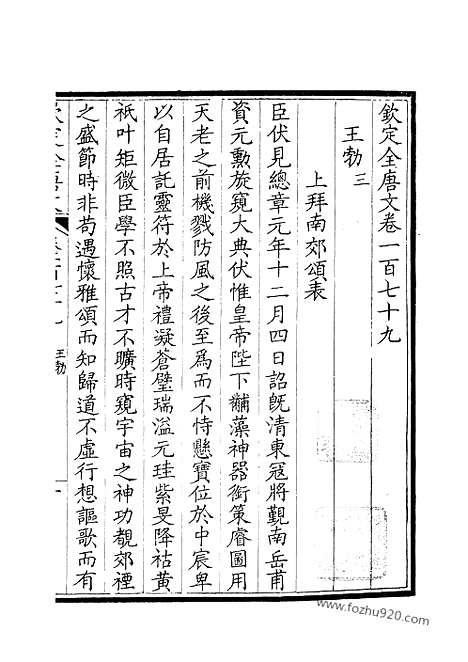 欽定全唐文卷一百七十九
王勃三
上拜南郊頌表
臣伏見總章元年十二月四日詔旣清東寇將觀南岳甫
資元勳旋窺大典伏惟皇帝陛下黼藻神器銜策睿圖用
天老之前機戮防風之後至為而不恃懸寶位於中宸卑
以自居託靈符於上帝禮凝蒼璧瑞溢元珪紫旻降祜黃
祇叶矩微臣學不照古才不曠時窺宇宙之神功覩郊禋
之盛節時非苟遇懷雅頌而知歸道不虛行想謳歌而有
王勃
一
www.fozhu920.com